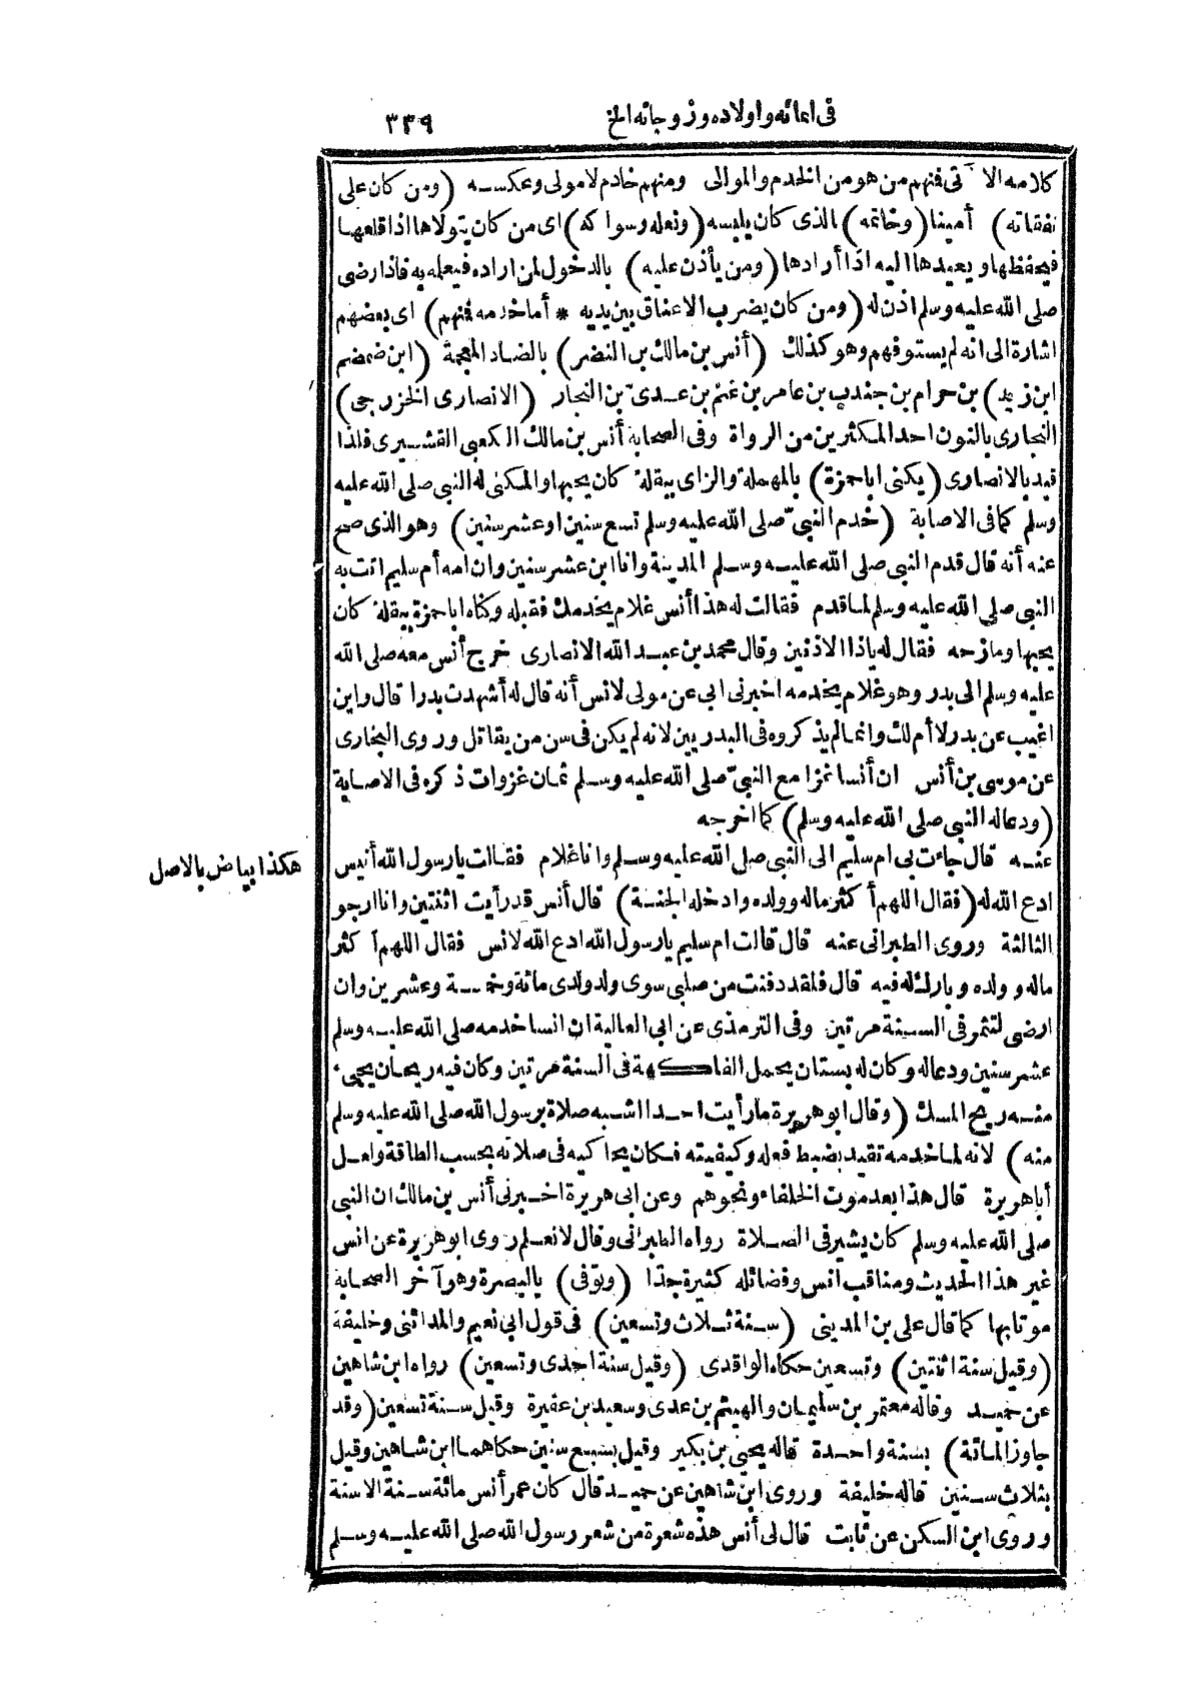 في اعمائه واولاده وزوجاته الخ
٣٣٩
كلامه الآتى فنهم من هو من الخدم والموالى ومنهم خادم لا مولى وعكسه (ومن كان على
نفقاته) أمينا (وخاتمه) الذى كان يلبسه (ونعله وسواكه) اى من كان يتولاها اذا قلعها
فيحفظها ويعيدها اليه اذا أرادها (ومن يأذن عليه) بالدخول لمن اراده فيعلمه به فاذا رضى
صلى الله عليه وسلم اذن له (ومن كان يضرب الاعناق بين يديه * أما خدمه فنهم) اى بعضهم
اشارة الى انه لم يستوفهم وهو كذلك (أنس بن مالك بن النضر) بالضاد المعجمة (ابن ضمضم
ابن زيد) بن حرام بن جندب بن عامر بن غنم بن عدىّ بن النجار (الانصارى الخزرجى)
النجارى بالنون احد المكثرين من الرواة وفى الصحابة أنس بن مالك الكعبى القشيرى فلذا
قيد بالانصارى (يكنى اباحمزة) بالمهملة والزاى ببقلة كان يحبها والمكنى له النبى صلى الله عليه
وسلم كما فى الاصابة (خدم النبىّ صلى الله عليه وسلم تسع سنين اوعشر سنين) وهو الذى صح
عنه أنه قال قدم النبى صلى الله عليه وسلم المدينة وانا ابن عشر سنين وان امه أم سليم اتت به
النبى صلى الله عليه وسلم لما قدم فقالت له هذا أنس غلام يخدمك فقبله وكناه اباحمزة ببقلة كان
يحبها ومازحه فقال له ياذا الاذنين وقال محمد بن عبد الله الانصارى خرج أنس معه صلى الله
عليه وسلم الى بدر وهو غلام يخدمه اخبرنى ابى عن مولى لانس أنه قال له أشهدت بدرا قال واين
اغيب عن بدر لا أم لك وانما لم يذكروه فى البدريين لانه لم يكن فى سن من يقاتل وروى البخارى
عن موسى بن أنس ان أنسا غزا مع النبىّ صلى الله عليه وسلم ثمان غزوات ذكره فى الاصابة
(ودعاله النبى صلى الله عليه وسلم) كما اخرجه
هكذا بياض بالاصل
عنه قال جاءت بى ام سليم الى النبى صلى الله عليه وسلم وانا غلام فقالت يارسول الله أنيس
ادع الله له (فقال اللهم أكثر ماله وولده وادخله الجنة) قال أنس قد رأيت اثنتين وانا ارجو
الثالثة وروى الطبرانى عنه قال قالت ام سليم يارسول الله ادع الله لانس فقال اللهم اكثر
ماله وولده وبارك له فيه قال فلقد دفنت من صلبى سوى ولد ولدى مائة وخمسة وعشرين وان
ارضى لتثمر فى السنة مرتين وفى الترمذى عن ابى العالية ان انسا خدمه صلى الله عليه وسلم
عشر سنين ودعاله وكان له بستان يحمل الفاكهة فى السنة مرتين وكان فيه ريحان يجىء
منه ريح المسك (وقال ابوهريرة مارأيت احدا اشبه صلاة برسول الله صلى الله عليه وسلم
منه) لانه لما خدمه تقيد بضبط فعله وكيفيته فكان يحاكيه فى صلاته بحسب الطاقة ولعل
أباهريرة قال هذا بعد موت الخلفاء ونحوهم وعن ابى هريرة اخبرنى أنس بن مالك ان النبى
صلى الله عليه وسلم كان يشير فى الصلاة رواه الطبرانى وقال لا نعلم روى ابوهريرة عن انس
غير هذا الحديث ومناقب انس وفضائله كثيرة جدّا (وتوفى) بالبصرة وهو آخر الصحابة
موتا بها كما قال على بن المدينى (سنة ثلاث وتسعين) فى قول ابى نعيم والمدائنى وخليفة
(وقيل سنة اثنتين) وتسعين حكاه الواقدى (وقيل سنة احدى وتسعين) رواه ابن شاهين
عن حميد وقاله معتمر بن سليمان والهيثم بن عدى وسعيد بن عفيرة وقيل سنة تسعين (وقد
جاوز المائة) بسنة واحدة قاله يحيى بن بكير وقيل بسبع سنين حكاهما ابن شاهين وقيل
بثلاث سنين قاله خليفة وروى ابن شاهين عن حميد قال كان عمر أنس مائة سنة الاسنة
وروى ابن السكن عن ثابت قال لى أنس هذه شعرة من شعر رسول الله صلى الله عليه وسلم